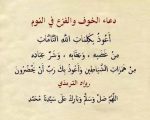 دعاء الخوف والفزع في النوم
أعوذ بكلمات الله التامات
من غضبه ، وعقابه ، وشر عباده
من همزات الشياطين وأعوذ بك رب أن يحضرون
رواه الترمذي
اللهم صل وسلم وبارك على سيدنا محمد